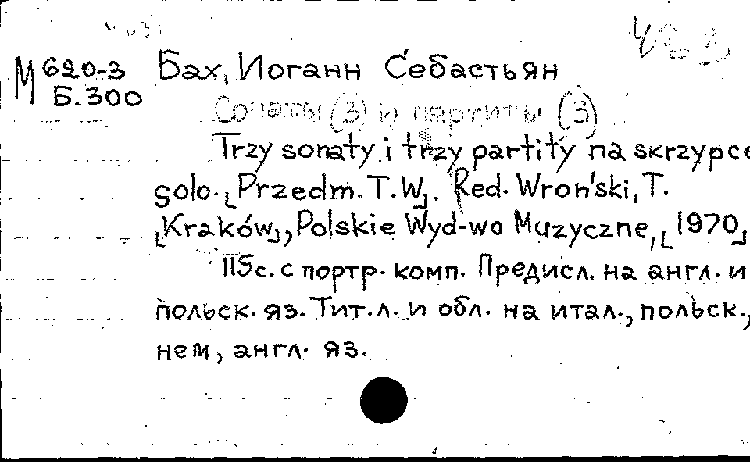 М 620-3 Бах, Иоганн Себастьян
Б.300
Сонаты (3) и партиты (3)
Trzy sonaty i trzy partity na skrzypce
solo. [Przedm. T.W]. Red. Wroński, T.
[Kraków], Polskie Wyd-wo Muzyczne, [1970]
115с. с портр. комп. Предисл. на англ. и
польск. яз. Тит.л. и обл. на итал., польск.,
нем, англ. яз.